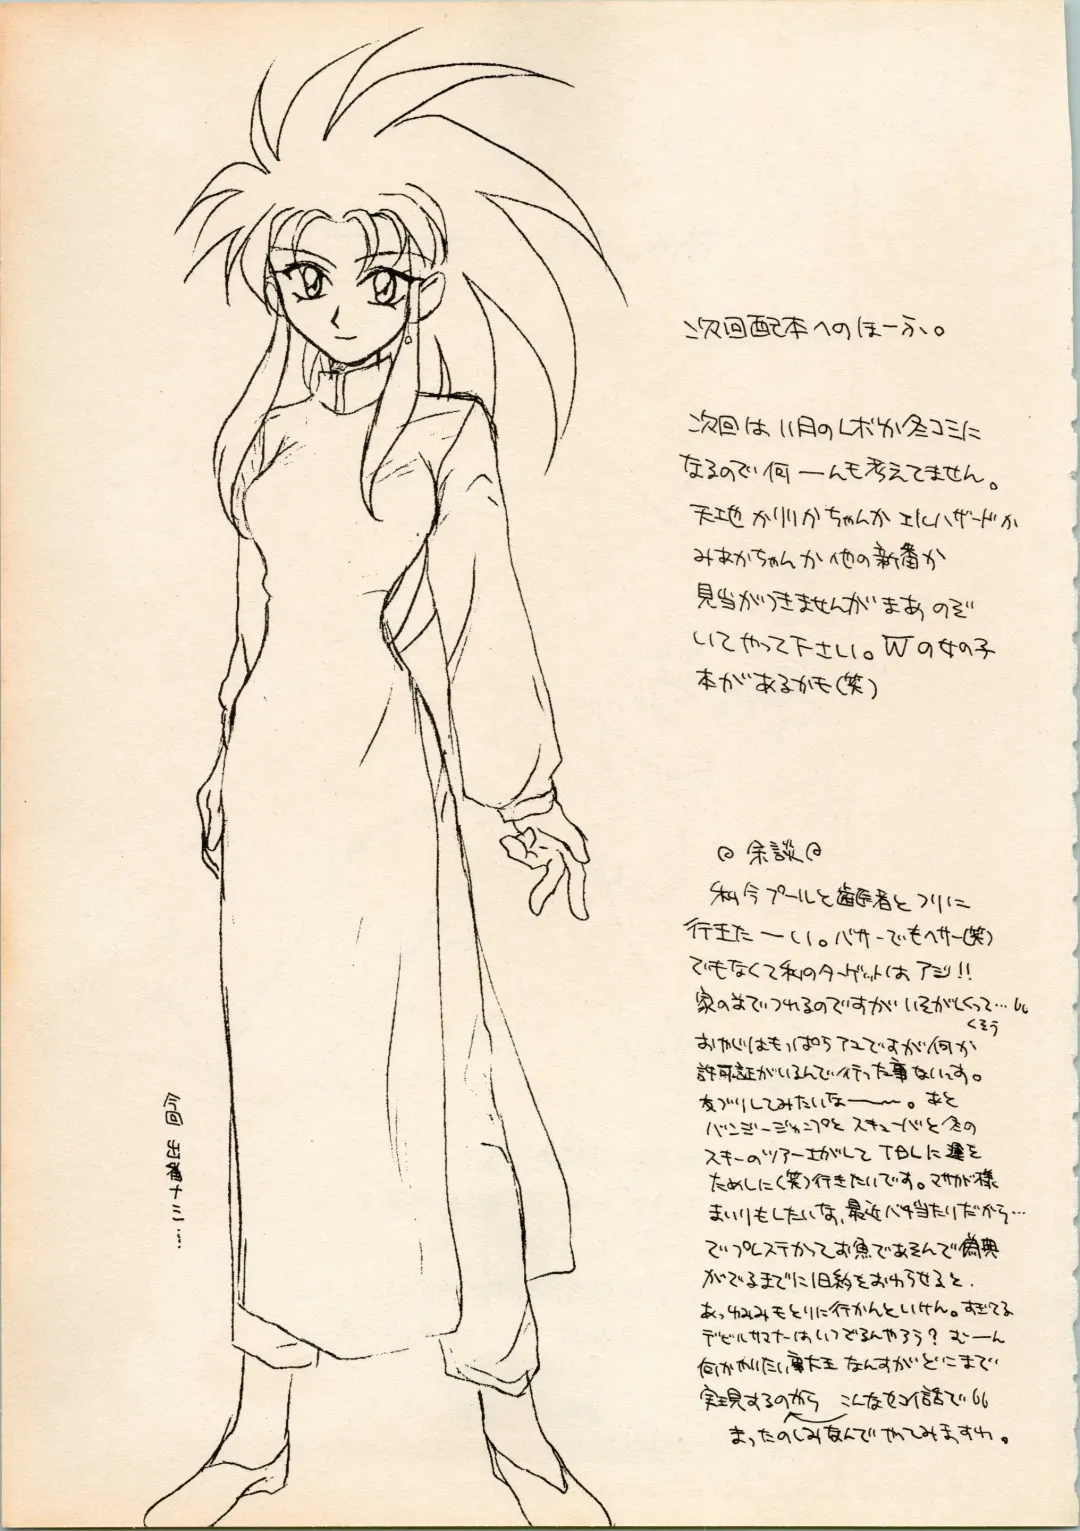 次回配本へのほーふ。
次回は、11月のレボか冬コミに
なるので何ーんも考えてません。
天地かリリカちゃんかエルハザードか
みあかちゃんか他の新番か
見当がつきませんがまあのぞ
いてやって下さい。Wの女の子
本があるかも(笑)
余談
私今プールと歯医者とツリに
行きたーい。バサーでもヘサー(笑)
でもなくて私のターゲットはアジ!!
家の前でつれるのですがいそがしくって…
くそう
おやじはもっぱらアユですが何か
許可証がいるんで行った事ないっす。
友づりしてみたいなー〜。あと
バンジージャンプとスキューバと冬の
スキーのツアーさがして TBLに運を
ためしに(笑)行きたいです。マサカド様
まいりもしたいな、最近バチ当たりだから…
でプレステかってお魚であそんで偽典
がでるまでに旧約をおわらせると、
あっゆみみもとりに行かんといけん。すぎてる
デビルサマナーはいつでるんやろう? むーん
何かやりたい事大王なんすがどこまで
実現するのかこんなセコイ話で
まったのしみなんでやってみますわ。
今回出番ナシ…